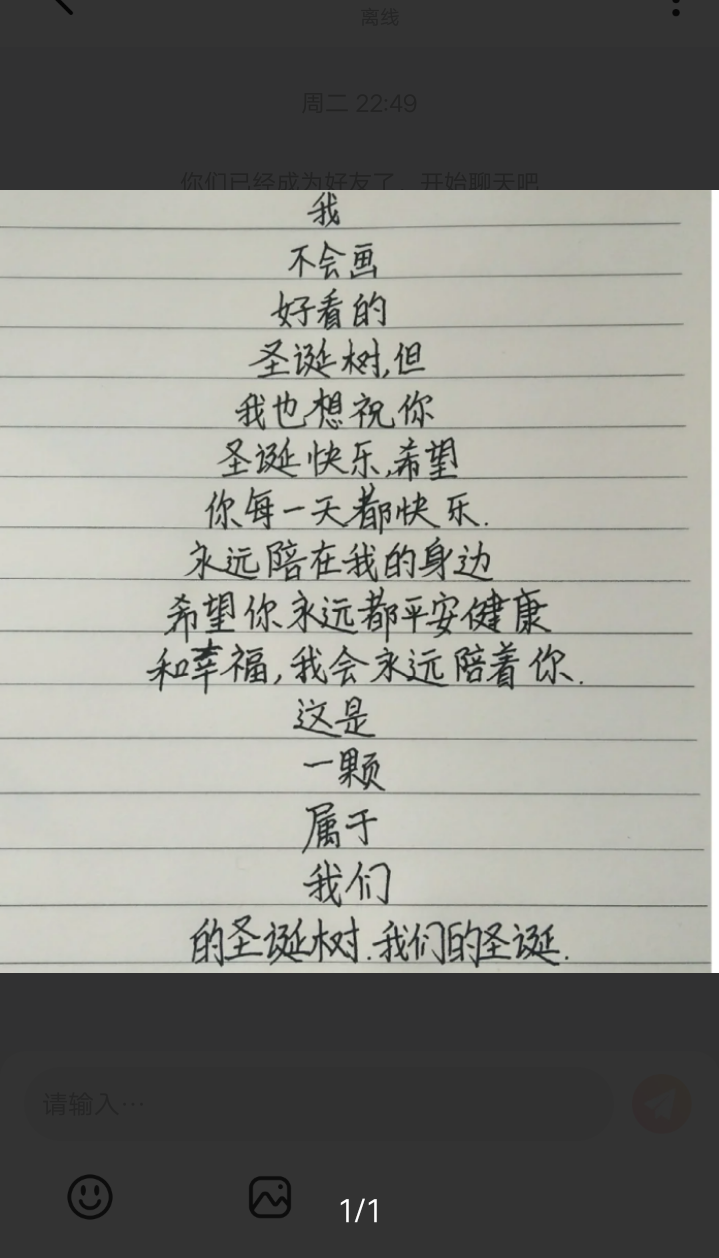 离线
周二 22:49
你们已经成为好友了 开始聊天吧
我
不会画
好看的
圣诞树,但
我也想祝你
圣诞快乐,希望
你每一天都快乐.
永远陪在我的身边
希望你永远都平安健康
和幸福,我会永远陪着你.
这是
一颗
属于
我们
的圣诞树.我们的圣诞.
请输入…
1/1